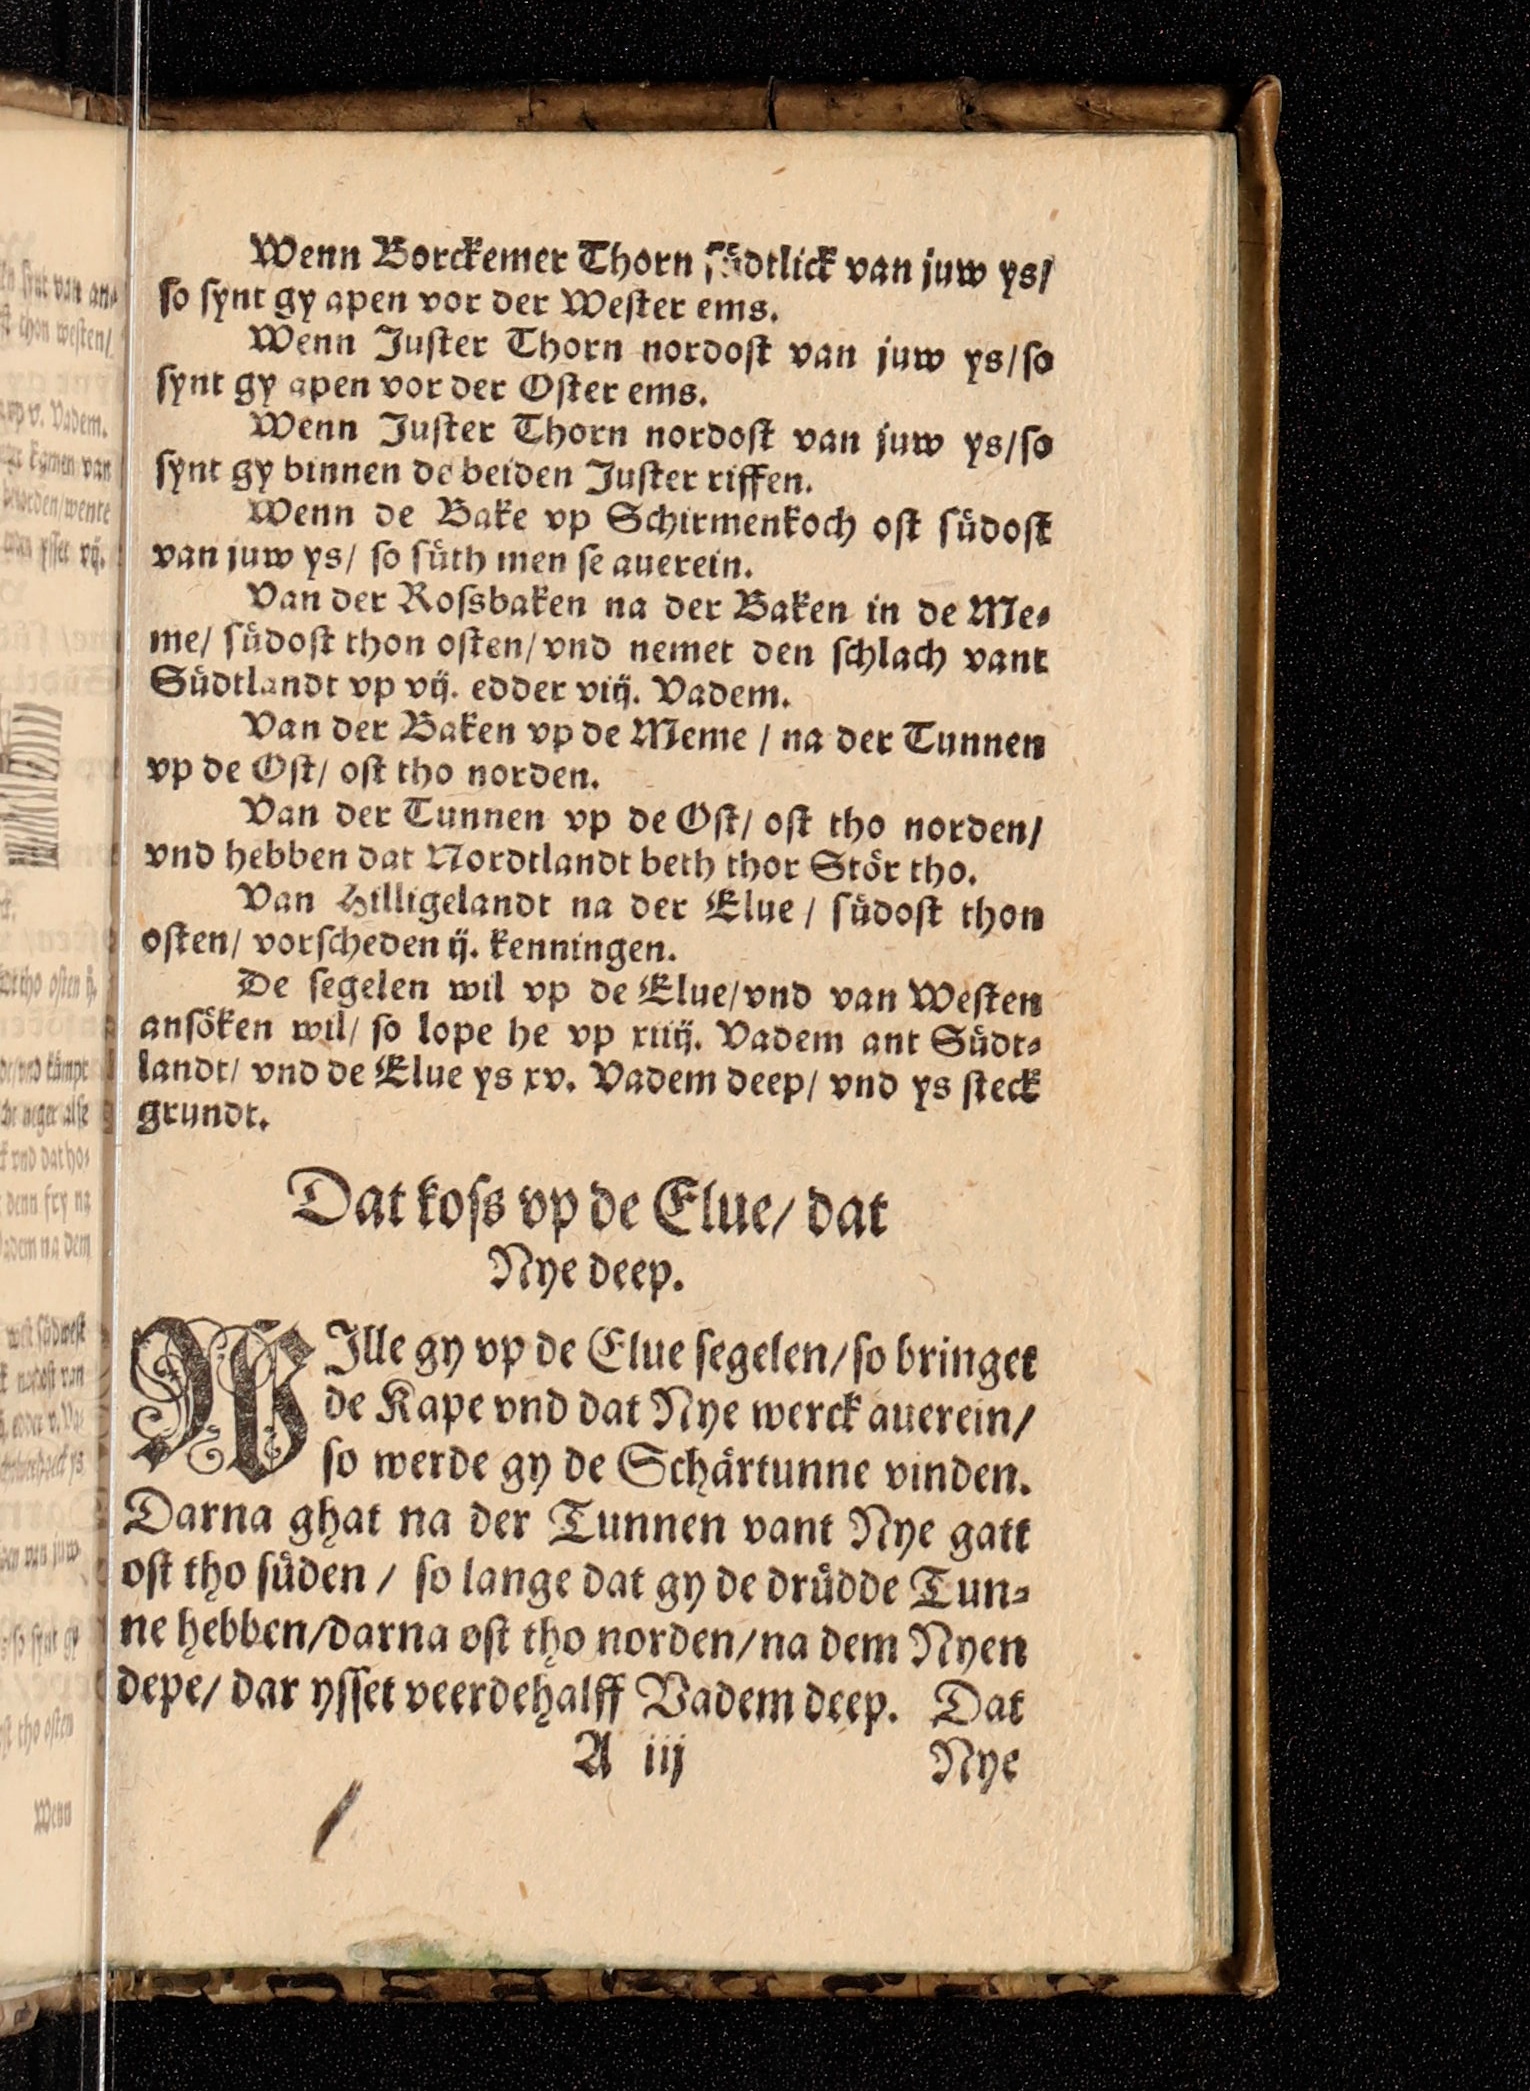 Wenn Borckemer Thorn ſuͤdtlick van juw ys/
ſo ſynt gy apen vor der Weſter ems.
Wenn Juſter Thorn nordoſt van juw ys/ſo
ſynt gy apen vor der Oſter ems.
Wenn Juſter Thorn nordoſt van juw ys/ſo
ſynt gy binnen de beiden Juſter riffen.
Wenn de Bake vp Schirmenkoch oſt ſuͤdoſt
van juw ys/ ſo ſuͤth men ſe auerein.
Van der Roſsbaken na der Baken in de Me⸗
me/ ſuͤdoſt thon oſten/ vnd nemet den ſchlach vant
Suͤdtlandt vp vij. edder viij. Vadem.
Van der Baken vp de Meme / na der Tunnen
vp de Oſt/ oſt tho norden.
Van der Tunnen vp de Oſt/ oſt tho norden/
vnd hebben dat Nordtlandt beth thor Stoͤr tho.
Van Hilligelandt na der Elue / ſuͤdoſt thon
oſten/ vorſcheden ij. kenningen.
De ſegelen wil vp de Elue/vnd van Weſten
anſoͤken wil/ ſo lope he vp xiiij. Vadem ant Suͤdt⸗
landt/ vnd de Elue ys xv. Vadem deep/ vnd ys ſteck
grundt.
Dat koſs vp de Elue/ dat
Nye deep.
WJlle gy vp de Elue ſegelen/ ſo bringet
de Kape vnd dat Nye werck auerein/
ſo werde gy de Schaͤrtunne vinden.
Darna ghat na der Tunnen vant Nye gatt
oſt tho ſuͤden / ſo lange dat gy de druͤdde Tun⸗
ne hebben/darna oſt tho norden/na dem Nyen
depe/ dar yſſet veerdehalff Vadem deep. Dat
A iij Nye